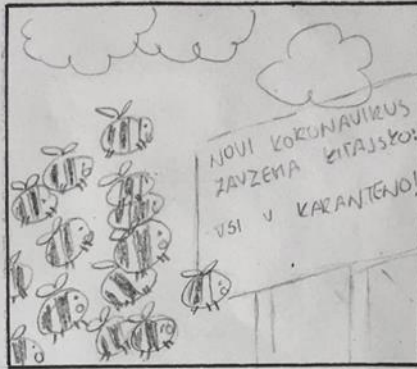 NOVI KORONAVIRUS
ZAVZEMA KITAJSKO!
VSI V KARANTENO!